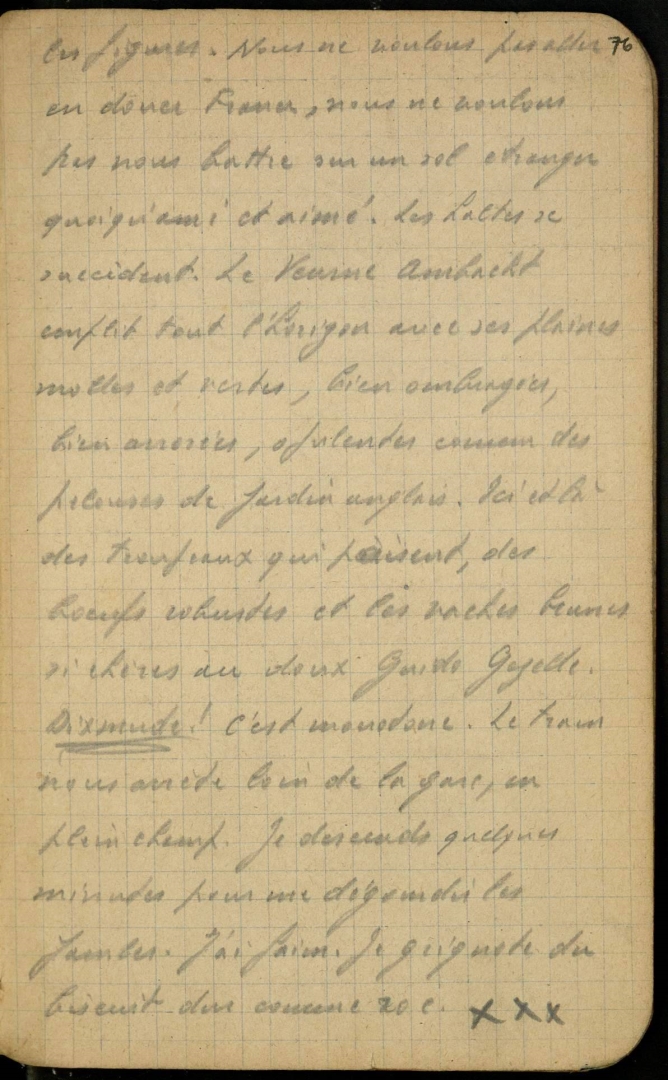 les figures. Nous ne voulons pas aller 76
en douce France, nous ne voulons
pas nous battre sur un sol etranger
quoiqu'ami et aimé. Les haltes se
succèdent. Le Veurne Ambacht
emplit tout l'horizon avec ses plaines
molles et vertes, bien ombragées,
bien arrosées, opulentes comme des
pelouses de jardin anglais. Ici et là
des troupeaux qui paissent, des
boeufs robustes et les vaches brunes
si chères au doux Guido Gezelle.
Dixmude! C'est monotone. Le train
nous arrête loin de la gare, en
plein champ. Je descends quelques
minutes pour me dégourdir les
jambes. J'ai faim. Je grignote du
biscuit dur comme roc. xxx